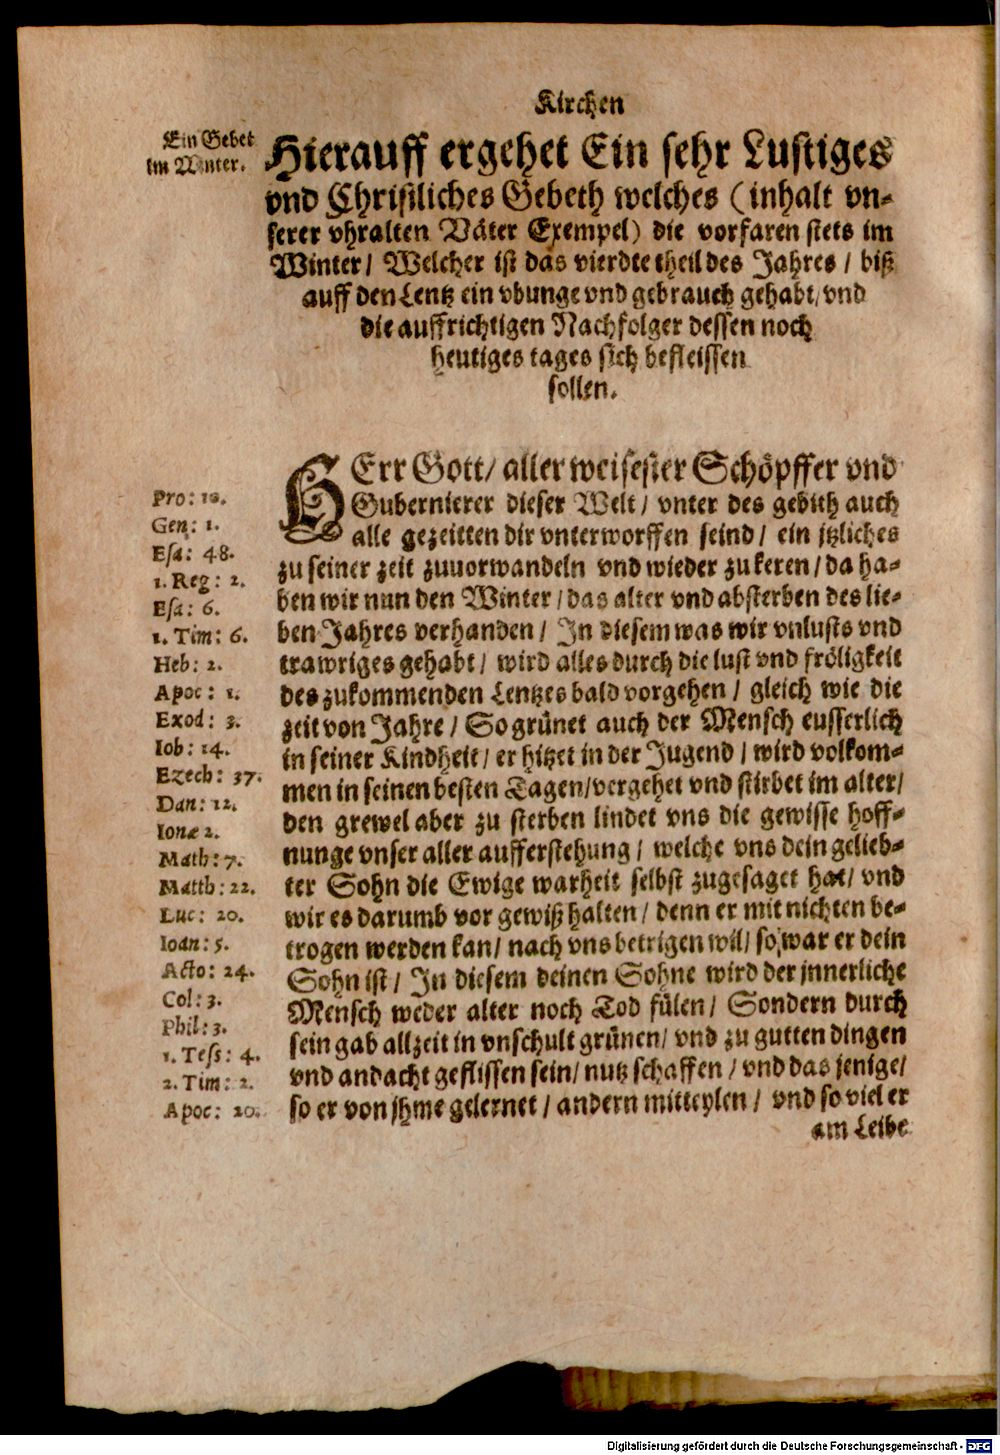 Kirchen
Ein Gebet
im Winter.
Hierauff ergehet Ein sehr Lustiges
vnd Christliches Gebeth welches (inhalt vn-
serer vhralten Väter Exempel) die vorfaren stets im
Winter/ Welcher ist das vierdte theil des Jahres / biß
auff den Lentz ein vbunge vnd gebrauch gehabt/ vnd
die auffrichtigen Nachfolger dessen noch
heutiges tages sich befleissen
sollen.
HErr Gott/ aller weisester Schöpffer vnd
Gubernierer dieser Welt / vnter des gebith auch
alle gezeitten dir vnterworffen seind / ein jtzliches
zu seiner zeit zuuorwandeln vnd wieder zu keren / da ha-
ben wir nun den Winter / das alter vnd absterben des lie-
ben Jahres verhanden / In diesem was wir vnlusts vnd
trawriges gehabt / wird alles durch die lust vnd fröligkeit
des zukommenden Lentzes bald vorgehen / gleich wie die
zeit von Jahre / So grünet auch der Mensch eusserlich
in seiner Kindheit / er hitzet in der Jugend / wird volkom-
men in seinen besten Tagen/ vergehet vnd stirbet im alter/
den grewel aber zu sterben lindet vns die gewisse hoff-
nunge vnser aller aufferstehung / welche vns dein gelieb-
ter Sohn die Ewige warheit selbst zugesaget hat/ vnd
wir es darumb vor gewiß halten / denn er mit nichten be-
trogen werden kan / nach vns betrigen wil/ so war er dein
Sohn ist / In diesem deinen Sohne wird der jnnerliche
Mensch weder alter noch Tod fülen / Sondern durch
sein gab allzeit in vnschult grünen/ vnd zu gutten dingen
vnd andacht geflissen sein/ nutz schaffen / vnd das jenige/
so er von jhme gelernet / andern mitteylen / vnd so viel er
am Leibe
Pro: 10.
Gen: 1.
Esa: 48.
1. Reg: 2.
Esa: 6.
1. Tim: 6.
Heb: 2.
Apoc: 1.
Exod: 3.
Iob: 14.
Ezech: 37.
Dan: 12.
Ionæ 2.
Math: 7.
Matth: 22.
Luc: 20.
Ioan: 5.
Acto: 24.
Col: 3.
Phil: 3.
1. Tess: 4.
2. Tim: 2.
Apoc: 20.
Digitalisierung gefördert durch die Deutsche Forschungsgemeinschaft - DFG